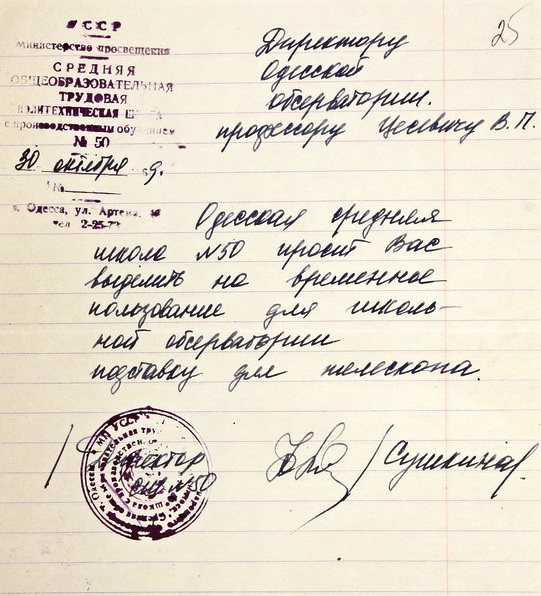 25
УССР
Министерство просвещения
СРЕДНЯЯ
ОБЩЕОБРАЗОВАТЕЛЬНАЯ
ТРУДОВАЯ
ПОЛИТЕХНИЧЕСКАЯ
с производственным обучением
№ 50
30 октября 9.
№
г. Одесса, ул. Артема,
тел 2-25-
Директору
Одесской
обсерватории.
профессору Цесевичу В. П.
Одесская средняя
школа №50 просит Вас
выделить на временное
пользование для школь-
ной обсерватории
подставку для телескопа.
Директор / Сушкина /
№50